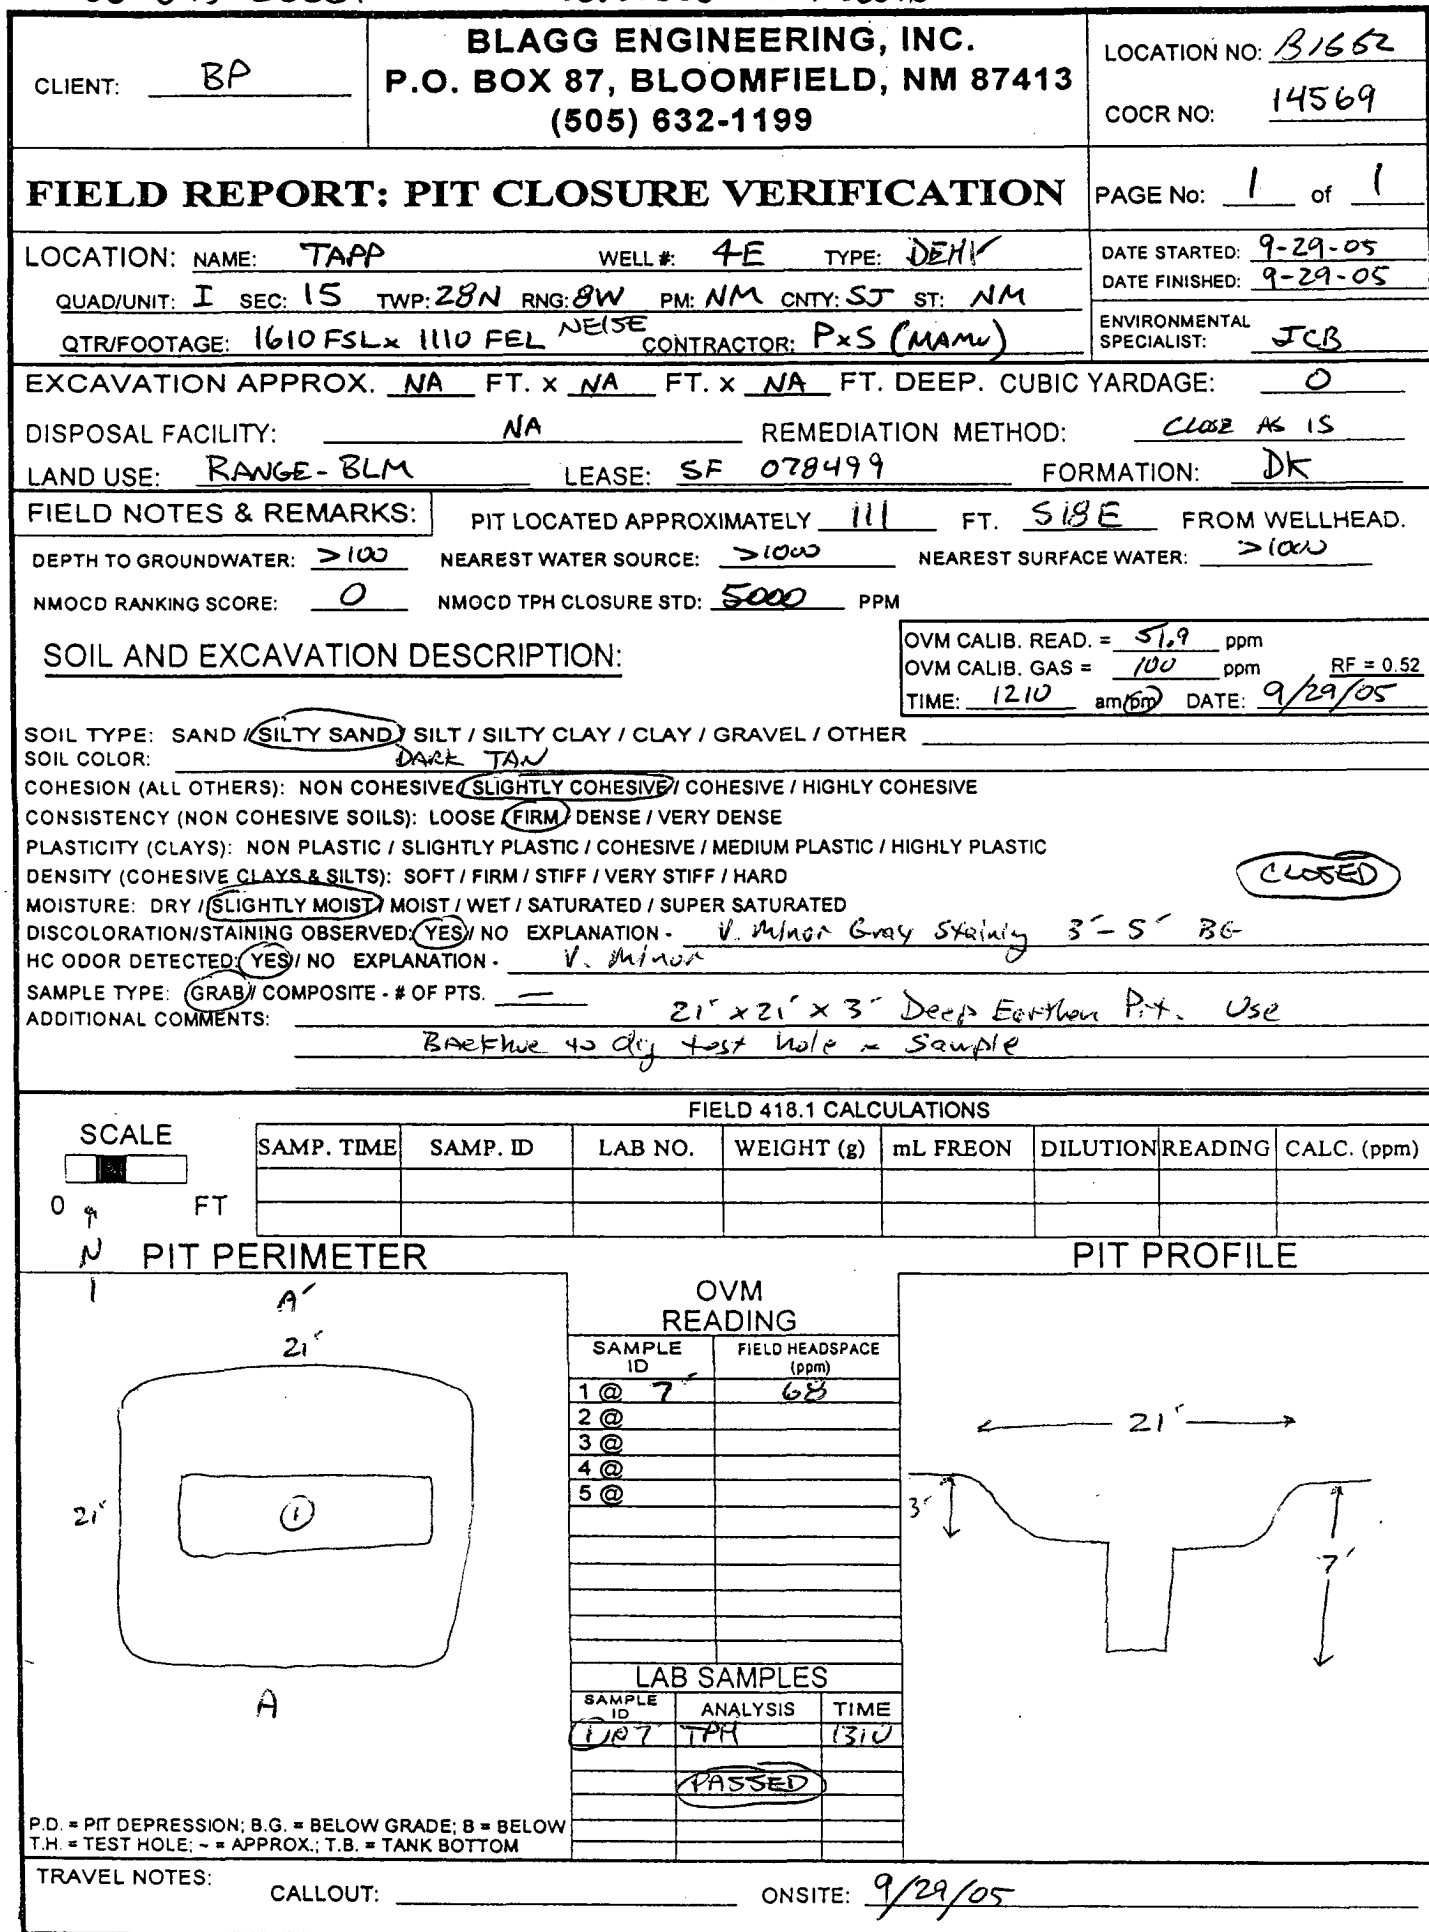 BLAGG ENGINEERING, INC.
P.O. BOX 87, BLOOMFIELD, NM 87413
(505) 632-1199
CLIENT: BP
LOCATION NO: B1652
COCR NO: 14569
FIELD REPORT: PIT CLOSURE VERIFICATION
PAGE No: 1 of 1
LOCATION: NAME: TAPP WELL #: 4E TYPE: DEHY
DATE STARTED: 9-29-05
DATE FINISHED: 9-29-05
QUAD/UNIT: I SEC: 15 TWP: 28N RNG: 8W PM: NM CNTY: SJ ST: NM
QTR/FOOTAGE: 1610 FSL x 1110 FEL NE/SE CONTRACTOR: P&S
ENVIRONMENTAL
SPECIALIST: JCB
EXCAVATION APPROX. NA FT. x NA FT. x NA FT. DEEP. CUBIC YARDAGE: 0
DISPOSAL FACILITY: NA REMEDIATION METHOD: CLOSE AS IS
LAND USE: RANGE-BLM LEASE: SF 078499 FORMATION: DK
FIELD NOTES & REMARKS: PIT LOCATED APPROXIMATELY 111 FT. S18E FROM WELLHEAD.
DEPTH TO GROUNDWATER: >100 NEAREST WATER SOURCE: >1000 NEAREST SURFACE WATER: >1000
NMOCD RANKING SCORE: 0 NMOCD TPH CLOSURE STD: 5000 PPM
SOIL AND EXCAVATION DESCRIPTION:
OVM CALIB. READ. = 51.9 ppm
OVM CALIB. GAS = 100 ppm RF = 0.52
TIME: 1210 am/pm DATE: 9/29/05
SOIL TYPE: SAND / SILTY SAND / SILT / SILTY CLAY / CLAY / GRAVEL / OTHER
SOIL COLOR: DARK TAN
COHESION (ALL OTHERS): NON COHESIVE / SLIGHTLY COHESIVE / COHESIVE / HIGHLY COHESIVE
CONSISTENCY (NON COHESIVE SOILS): LOOSE / FIRM / DENSE / VERY DENSE
PLASTICITY (CLAYS): NON PLASTIC / SLIGHTLY PLASTIC / COHESIVE / MEDIUM PLASTIC / HIGHLY PLASTIC
DENSITY (COHESIVE CLAYS & SILTS): SOFT / FIRM / STIFF / VERY STIFF / HARD
CLOSED
MOISTURE: DRY / SLIGHTLY MOIST / MOIST / WET / SATURATED / SUPER SATURATED
DISCOLORATION/STAINING OBSERVED: YES / NO EXPLANATION - V. Minor Gray Staining 3' - 5' BG
HC ODOR DETECTED: YES / NO EXPLANATION - V. Minor
SAMPLE TYPE: GRAB / COMPOSITE - # OF PTS. —
ADDITIONAL COMMENTS: 21' x 21' x 3' Deep Earthen Pit. Use
Backhoe to dig test hole & Sample
FIELD 418.1 CALCULATIONS
SCALE
0 FT
SAMP. TIME SAMP. ID LAB NO. WEIGHT (g) mL FREON DILUTION READING CALC. (ppm)
N
PIT PERIMETER
PIT PROFILE
A'
21'
21'
1
A
OVM
READING
SAMPLE ID FIELD HEADSPACE (ppm)
1 @ 7' 68
2 @
3 @
4 @
5 @
21'
3'
7'
LAB SAMPLES
SAMPLE ID ANALYSIS TIME
1@7' TPH 1310
PASSED
P.D. = PIT DEPRESSION; B.G. = BELOW GRADE; B = BELOW
T.H. = TEST HOLE; ~ = APPROX.; T.B. = TANK BOTTOM
TRAVEL NOTES:
CALLOUT: ONSITE: 9/29/05